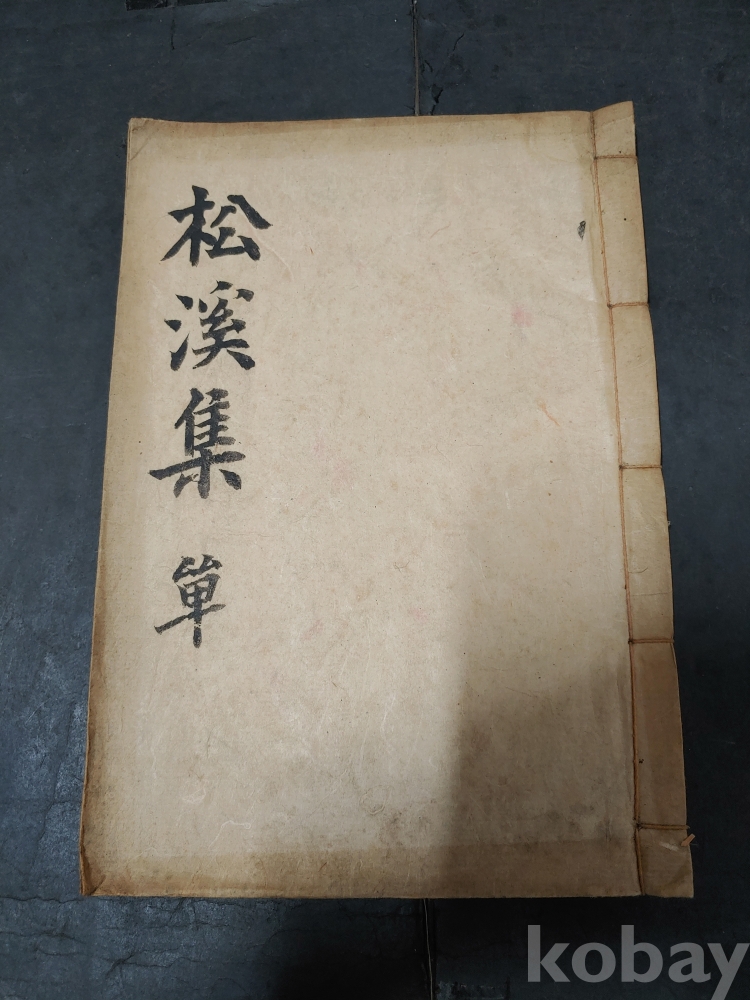 松溪集 單
kobay